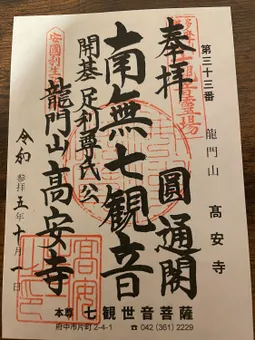 奉拝
第三十三番 龍門山 高安寺
圓通閣
南無七観音
開基 足利尊氏公
安國利生
龍門山高安寺
令和 参拝 五年十月一日
本尊 七観世音菩薩
府中市片町2-4-1 ☎ 042 (361) 2229